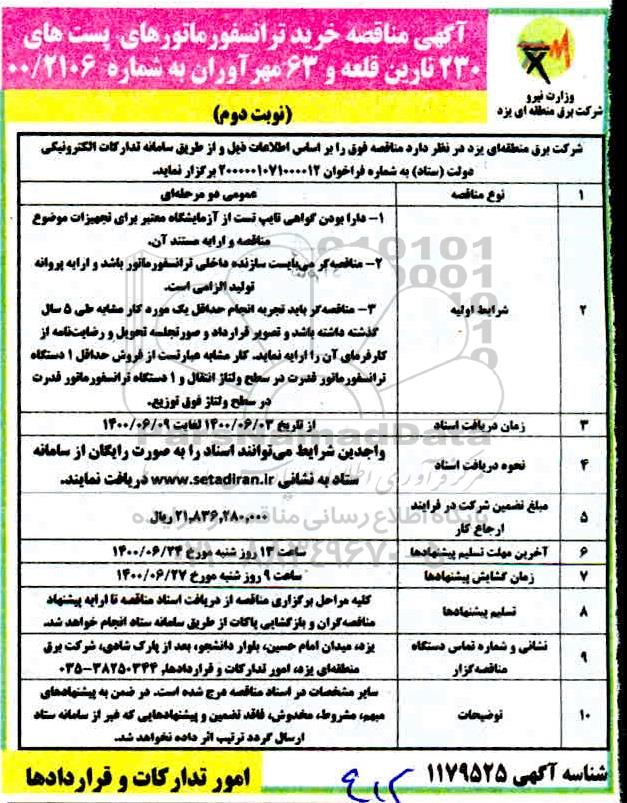 آگهی مناقصه خرید ترانسفورماتورهای پست های
۲۳۰ نارین قلعه و ۶۳ مهرآوران به شماره ۰۰/۲۱۰۶
وزارت نیرو
شرکت برق منطقه ای یزد
(نوبت دوم)
شرکت برق منطقه‌ای یزد در نظر دارد مناقصه فوق را بر اساس اطلاعات ذیل و از طریق سامانه تدارکات الکترونیکی
دولت (ستاد) به شماره فراخوان ۲۰۰۰۰۰۱۰۷۱۰۰۰۰۱۲ برگزار نماید.
۱ نوع مناقصه عمومی دو مرحله‌ای
۲ شرایط اولیه
۱- دارا بودن گواهی تایپ تست از آزمایشگاه معتبر برای تجهیزات موضوع
مناقصه و ارایه مستند آن.
۲- مناقصه‌گر می‌بایست سازنده داخلی ترانسفورماتور باشد و ارایه پروانه
تولید الزامی است.
۳- مناقصه‌گر باید تجربه انجام حداقل یک مورد کار مشابه طی ۵ سال
گذشته داشته باشد و تصویر قرارداد و صورتجلسه تحویل و رضایت‌نامه از
کارفرمای آن را ارایه نماید. کار مشابه عبارتست از فروش حداقل ۱ دستگاه
ترانسفورماتور قدرت در سطح ولتاژ انتقال و ۱ دستگاه ترانسفورماتور قدرت
در سطح ولتاژ فوق توزیع.
۳ زمان دریافت اسناد از تاریخ ۱۴۰۰/۰۶/۰۳ لغایت ۱۴۰۰/۰۶/۰۹
۴ نحوه دریافت اسناد
واجدین شرایط می‌توانند اسناد را به صورت رایگان از سامانه
ستاد به نشانی www.setadiran.ir دریافت نمایند.
۵ مبلغ تضمین شرکت در فرایند
ارجاع کار
۲۱,۸۳۶,۲۸۰,۰۰۰ ریال
۶ آخرین مهلت تسلیم پیشنهادها ساعت ۱۳ روز شنبه مورخ ۱۴۰۰/۰۶/۲۴
۷ زمان گشایش پیشنهادها ساعت ۹ روز شنبه مورخ ۱۴۰۰/۰۶/۲۷
۸ تسلیم پیشنهادها
کلیه مراحل برگزاری مناقصه از دریافت اسناد مناقصه تا ارایه پیشنهاد
مناقصه‌گران و بازگشایی پاکات از طریق سامانه ستاد انجام خواهد شد.
۹ نشانی و شماره تماس دستگاه
مناقصه‌گزار
یزد، میدان امام حسین، بلوار دانشجو، بعد از پارک شادی، شرکت برق
منطقه‌ای یزد، امور تدارکات و قراردادها، ۳۸۲۵۰۳۴۴-۰۳۵
۱۰ توضیحات
سایر مشخصات در اسناد مناقصه درج شده است. در ضمن به پیشنهادهای
مبهم، مشروط، مخدوش، فاقد تضمین و پیشنهادهایی که غیر از سامانه ستاد
ارسال گردد ترتیب اثر داده نخواهد شد.
شناسه آگهی ۱۱۷۹۵۲۵
امور تدارکات و قراردادها